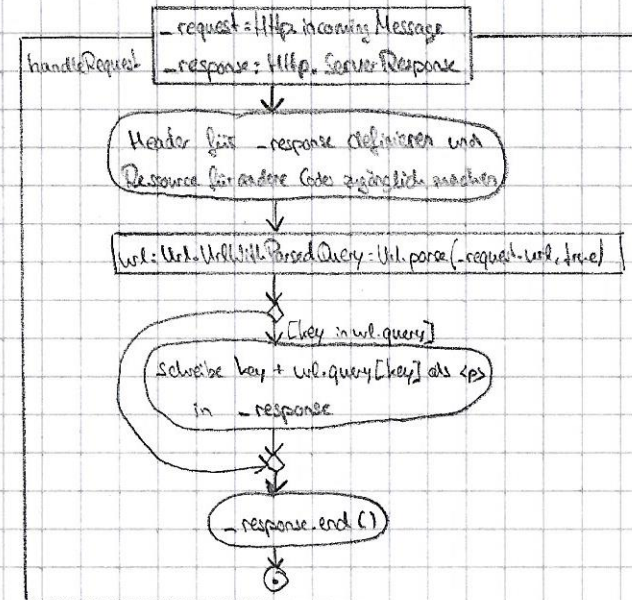 _request: Http.incomingMessage
handleRequest
_response: Http.ServerResponse
Header für _response definieren und
Resource für andere Codes zugänglich machen
url: Url.UrlWithParsedQuery = Url.parse(_request.url, true)
[key in url.query]
Schreibe key + url.query[key] als <p>
in _response
_response.end()